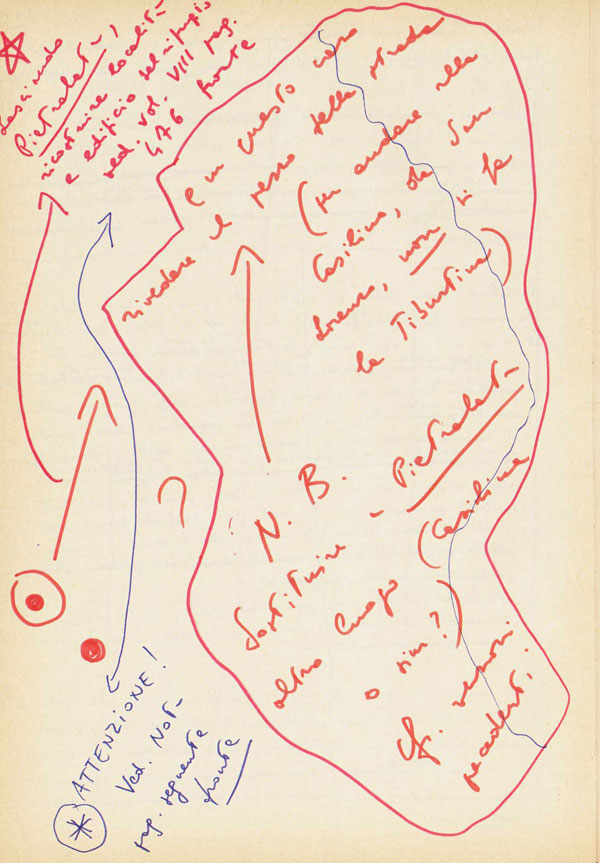 Lasciando
Pietralat-,
ricostruire località
e edificio del rifugio
ved. vol. VIII pag.
476 fronte
e in questo caso
rivedere il pezzo della strada
(per andare alla
Casilina, da San
Lorenzo, non si fa
la Tiburtina)
?
N. B.
Sostituire - Pietralat-
altro luogo (Casilina
o sim.?)
Cf. versioni
precedenti.
* ATTENZIONE!
Ved. NOT-
pag. seguente
fronte